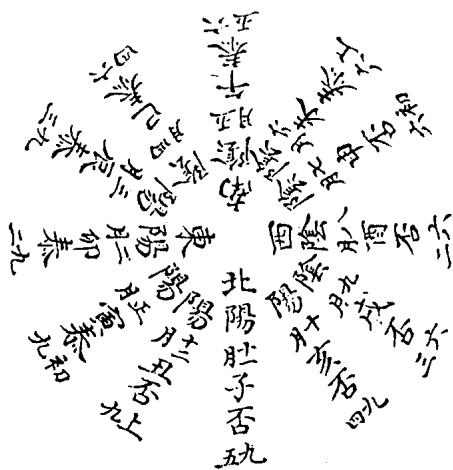 北陽十一月子否九五
陽十二月丑否上九
陽正月寅泰初九
東陽二月卯泰九二
陽三月辰泰九三
陰四月巳泰六四
南陰五月午泰六五
陰六月未泰上六
陰七月申否初六
西陰八月酉否六二
陰九月戌否六三
陽十月亥否九四